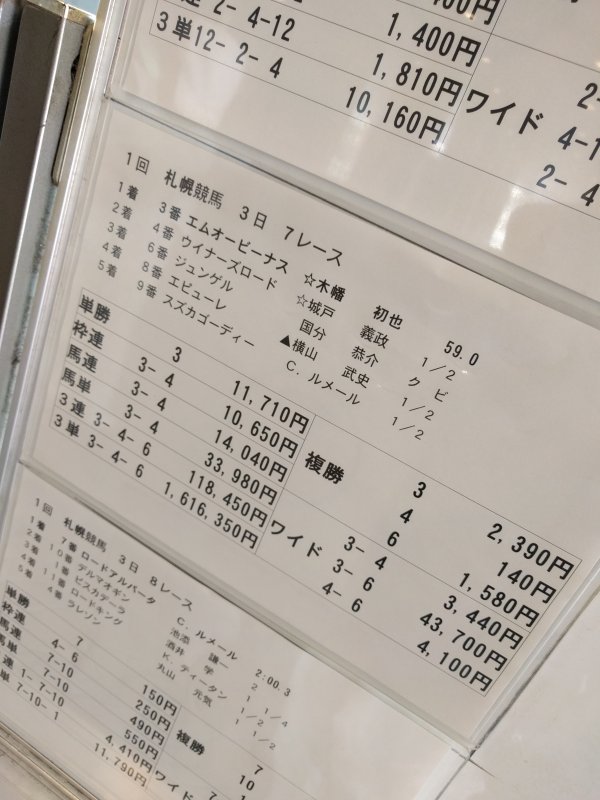 連 2- 4-12 1,400円
3単12- 2- 4 1,810円
10,160円
ワイド 4-1
2- 4
1回 札幌競馬 3日 7レース
1着 3番 エムオービーナス ☆木幡 初也 59.0
2着 4番 ウイナーズロード ☆城戸 義政 1/2
3着 6番 ジュンゲル 国分 恭介 クビ
4着 8番 エピューレ ▲横山 武史 1/2
5着 9番 スズカゴーディー C.ルメール 1/2
単勝 3 11,710円
枠連 3- 4 10,650円
馬連 3- 4 14,040円
馬単 3- 4 33,980円
3連 3- 4- 6 118,450円
3単 3- 4- 6 1,616,350円
複勝 3 2,390円
4 140円
6 1,580円
ワイド 3- 4 3,440円
3- 6 43,700円
4- 6 4,100円
1回 札幌競馬 3日 8レース
1着 7番 ロードアルバータ C.ルメール 2:00.3
2着 10番 デルマオギン 池添 謙一 2
3着 11番 ビスカデーラ 酒井 学 1 1/4
4着 ロードキング K.ティータン 1/2
5着 4番 ラレゾン 丸山 元気 1 1/2
単勝 7 150円
枠連 4- 6 250円
馬連 7-10 490円
7-10 550円
連 1- 7-10 4,410円
単 7-10- 1 11,790円
複勝 7
10
ワイド 7